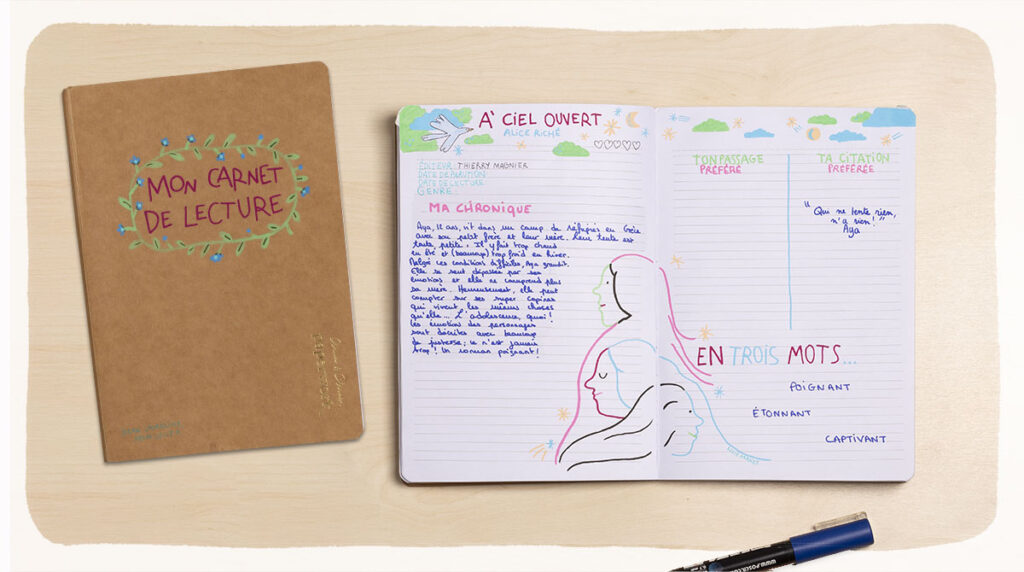 MON CARNET
DE LECTURE
À CIEL OUVERT
ALICE RICHÉ
ÉDITEUR : THIERRY MAGNIER
DATE DE PARUTION
DATE DE LECTURE
GENRE :
MA CHRONIQUE
Aya, 12 ans, vit dans un camp de réfugiés en Grèce
avec son petit frère et leur mère. Leur tente est
toute petite. Il y fait trop chaud
en été et (beaucoup) trop froid en hiver.
Malgré ces conditions difficiles, Aya grandit.
Elle se sent dépassée par ses
émotions et elle ne comprend plus
sa mère. Heureusement, elle peut
compter sur ses super copines
qui vivent les mêmes choses
qu'elle... L'adolescence, quoi !
Les émotion des personnages
sont décrites avec beaucoup
de justesse ; ce n'est jamais
trop ! Un roman poignant !
TON PASSAGE
PRÉFÉRÉ
TA CITATION
PRÉFÉRÉE
" Qui ne tente rien,
n'a rien ! "
Aya
EN TROIS MOTS...
POIGNANT
ÉTONNANT
CAPTIVANT